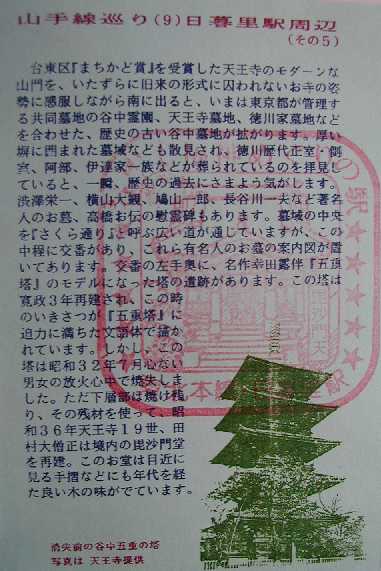 山手線巡り(9)日暮里駅周辺
(その5)
台東区『まちかど賞』を受賞した天王寺のモダーンな
山門を、いたずらに旧来の形式に囚われないお寺の姿
勢に感服しながら南に出ると、いまは東京都が管理す
る共同墓地の谷中霊園、天王寺墓地、徳川家墓地など
を合わせた、歴史の古い谷中墓地が拡がります。厚い
塀に囲まれた墓域なども散見され、徳川歴代正室・側
室、阿部、伊達家一族などが葬られているのを拝見し
ていると、一瞬、歴史の過去にさまよう気がします。
渋澤栄一、横山大観、鳩山一郎、長谷川一夫など著名
人のお墓、高橋お伝の慰霊碑もあります。墓域の中央
を『さくら通り』と呼ぶ広い道が通じていますが、この
中程に交番があり、これら有名人のお墓の案内図が置
いてあります。交番の左手奥に、名作幸田露伴『五重
塔』のモデルになった塔の遺跡があります。この塔は
寛政3年再建され、この時
のいきさつが『五重塔』に
迫力に満ちた文語体で描か
れています。しかし、この
塔は昭和32年7月心ない
男女の放火心中で焼失しま
した。ただ下層部は焼け残
り、その残材を使って、昭
和36年天王寺19世、田
村大僧正は境内の毘沙門堂
を再建。このお堂は目近に
見る手摺などにも年代を経
た良い木の味がでています。
の駅
本線
駅
焼失前の谷中五重の塔
写真は 天王寺提供